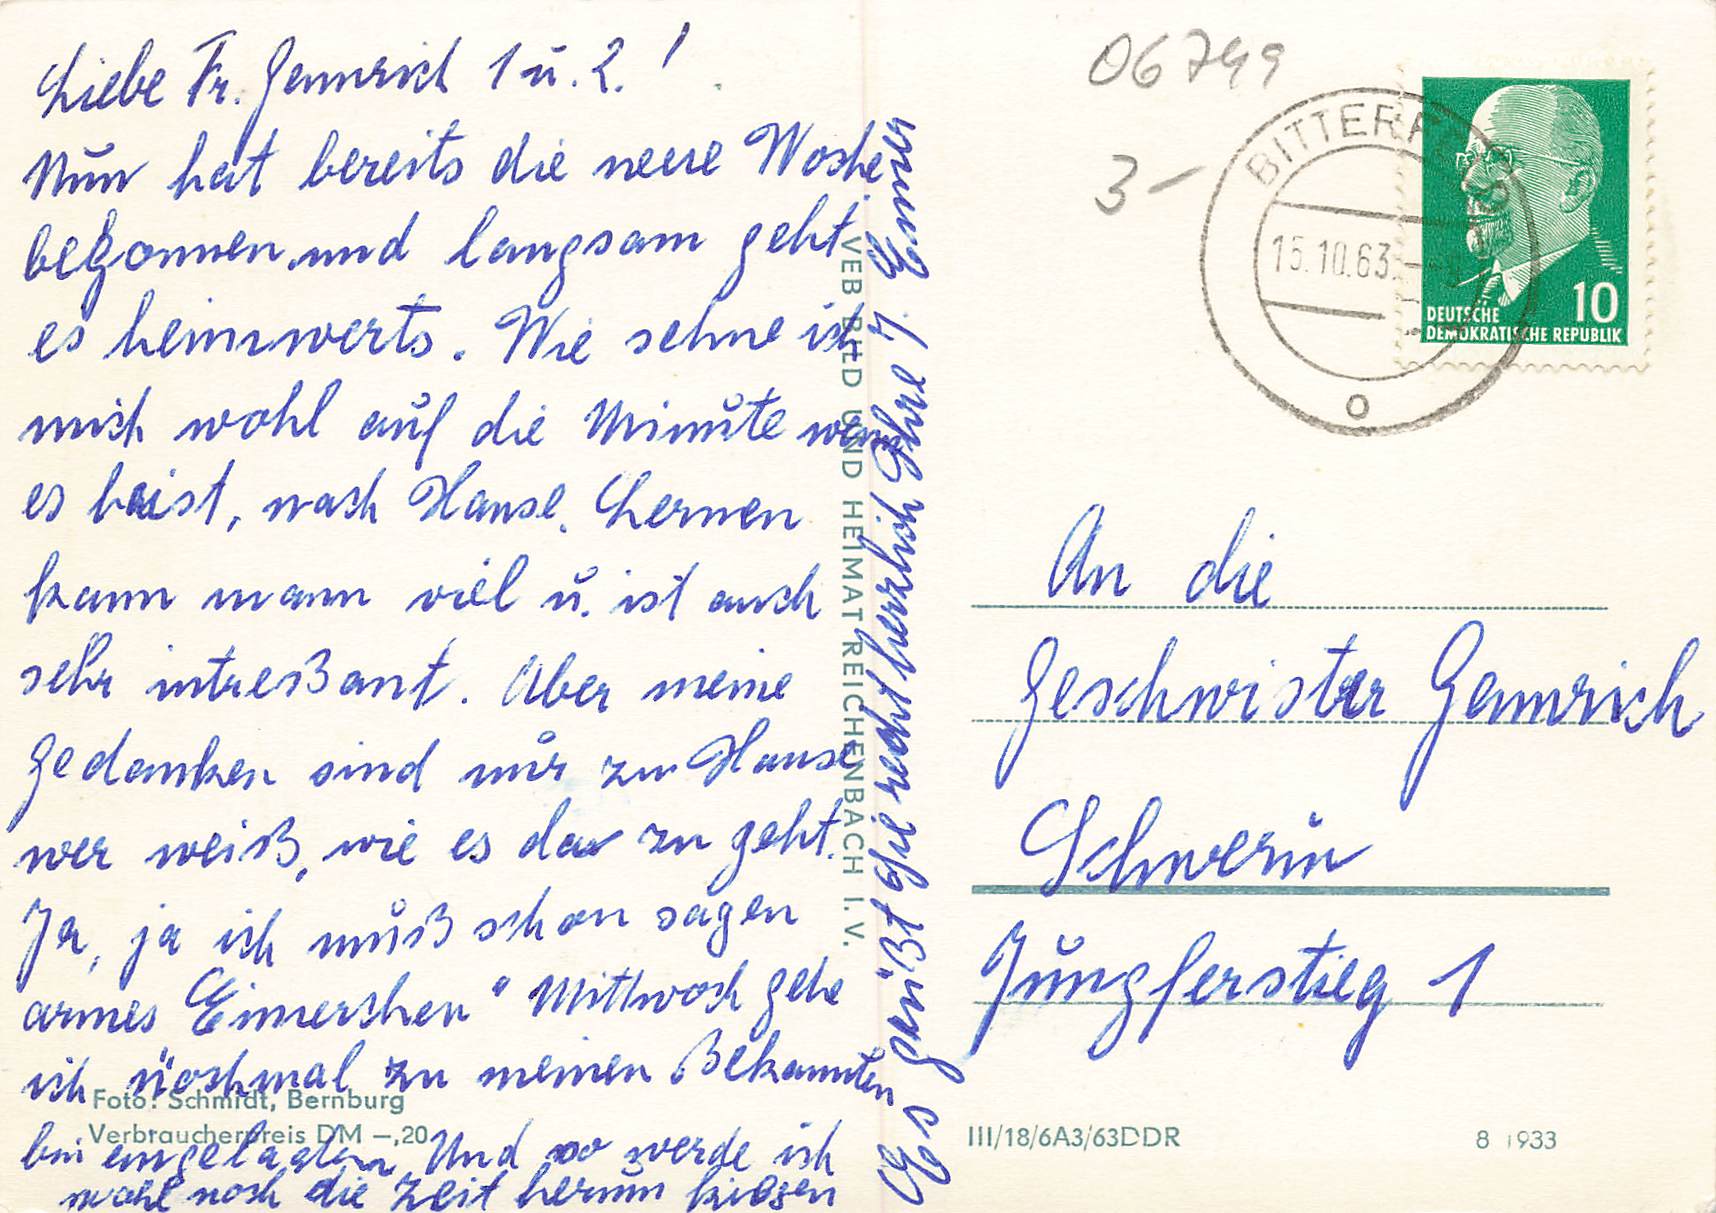 Liebe Fr. Gemmrich 1 u. 2. !
Nun hat bereits die neue Woche
begonnen und langsam geht
es heimwerts. Wie sehne ich
mich wohl auf die Minute wenn
es heist, nach Hause. Lernen
kann mann viel u. ist auch
sehr intreßant. Aber meine
Gedanken sind nur zu Hause
wer weiß, wie es da zu geht.
Ja, ja ich muß schon sagen
armes Eimerchen" Mittwoch gehe
ich nochmal zu meinen Bekannten
bin eingeladen. Und so werde ich
wohl noch die Zeit herum kriegen
Es grüßt Sie recht herzlich Ihre I. Eimer
VEB BILD UND HEIMAT REICHENBACH I. V.
Foto: Schmidt, Bernburg
Verbraucherpreis DM –,20
06749
3-
BITTERFELD
15.10.63
o
10
DEUTSCHE
DEMOKRATISCHE REPUBLIK
An die
Geschwister Gemmrich
Schwerin
Jungferstieg 1
III/18/6A3/63DDR
8 1933